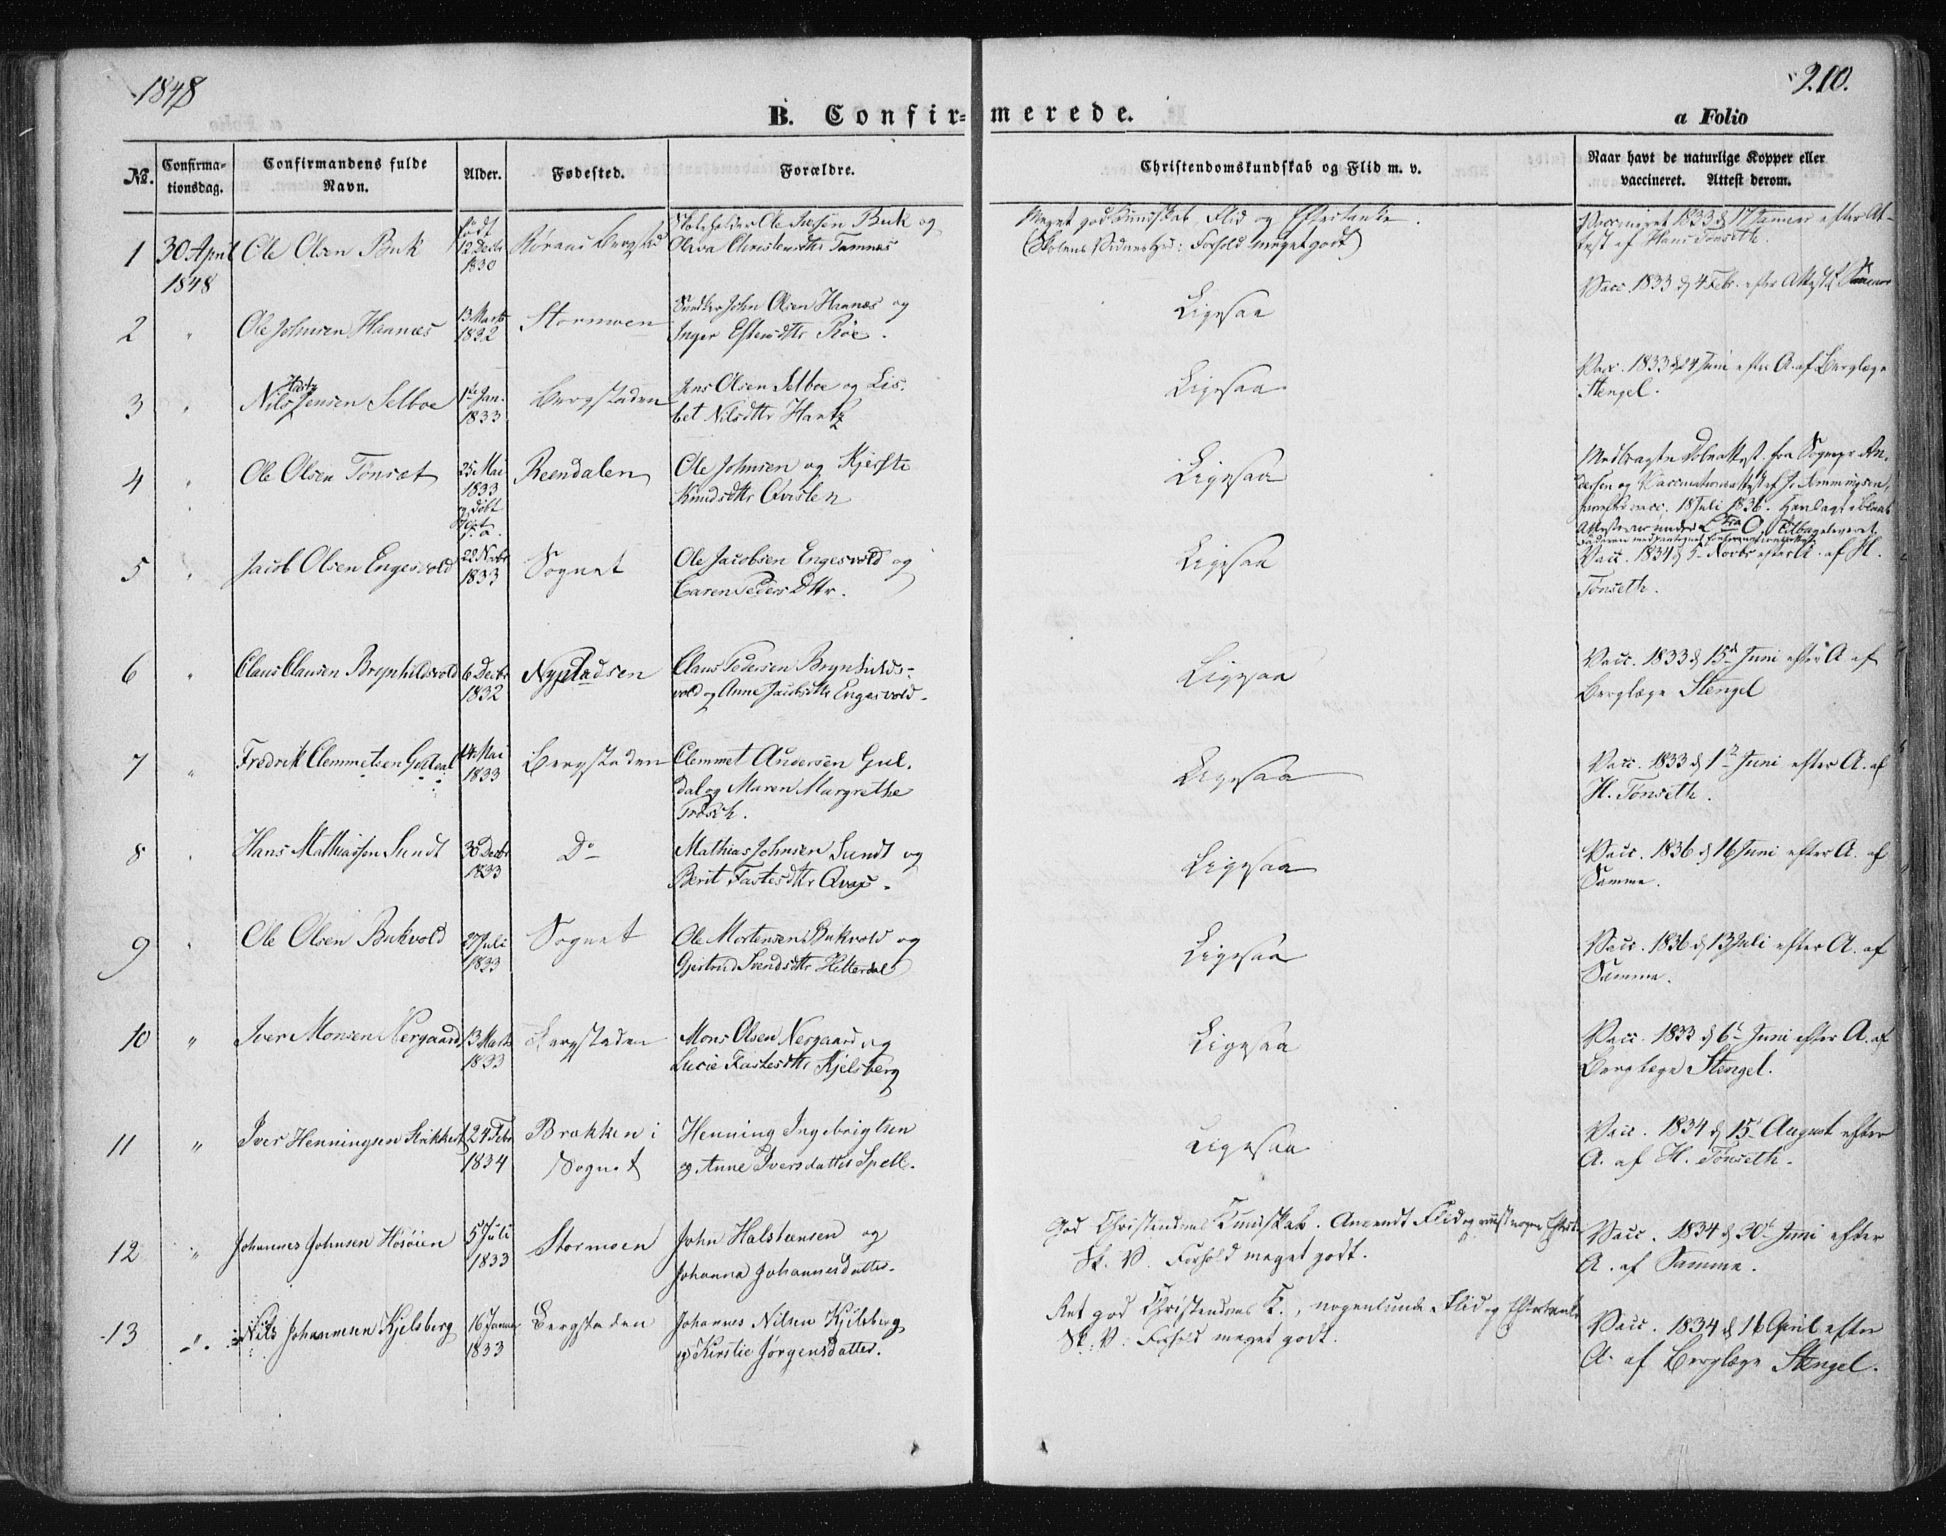 1848
210.
B. Confirmerede.
a Folio
No.
Confirmationsdag.
Confirmandens fulde Navn.
Alder.
Fødested.
Forældre.
Christendomskundskab og Flid m. v.
Naar havt de naturlige Kopper eller vaccineret. Attest derom.
1 30 April 1848 Ole Olsen Buk født 12 Decbr 1830
Ole Iversen Buk og
Olava Christensdttr Tamnes
Meget god Kundskab, Flid og Eftertanke.
Forhold meget godt)
Vaccineret 1833 d 17 Januar efter Attest af Hans Tønseth.
2 " Ole Johnsen Haanæs 13 Marts 1832 Stormoen
John Olsen Haanæs og
Inger Estensdttr Røe.
Ligesaa
Vacc. 1833 d 4 Febr. efter Attest af
3 " Nils Hartz Jensen Selboe 1te Jan. 1833 Bergstaden
Jens Olsen Selboe og Lisbet Nilsdttr Hartz
Ligesaa
Vacc. 1833 d 24 Juni efter A. af Berglæge Stengel.
4 " Ole Olsen Tønset 25 Mai 1833 Reendalen
Ole Johnsen og Kjersti
Knudsdttr Qvislen
Ligesaa
Medbragte Døbeattest fra Sognepr. Andersen og Vaccinationsattest af
vacc. 18 Juli 1836.
5 " Jacob Olsen Engesvold 22 Novbr 1833 Sognet
Ole Jacobsen Engesvold og
Caren Peders Dttr.
Ligesaa
Vacc. 1834 d 5 Novbr efter A. af H. Tønseth.
6 " Claus Clausen Brynhildsvold 6 Decbr 1832 Nypladsen
Claus Pedersen Brynhildsvold og Anne Jacobsdttr Engesvold.
Ligesaa
Vacc. 1833 d 15d Juni efter A. af
Berglæge Stengel
7 " Fredrik Clemmetsen Guldal 14 Mai 1833 Bergstaden
Clemmet Andersen Guldal og Maren Margrethe
Trøsch.
Ligesaa
Vacc. 1833 d 1 Juni efter A. af
H. Tønseth.
8 " Hans Mathiassen Sundt 30 Decbr 1833 Do
Mathias Johnsen Sundt og
Berit Fastesdttr
Ligesaa
Vacc. 1836 d 16 Juni efter A. af
Samme.
9 " Ole Olsen Bukvold 27 Juli 1833 Sognet
Ole Mortensen Bukvold og
Gjertrud Svendsdttr Hitterdal
Ligesaa
Vacc. 1836 d 13 Juli efter A. af
Samme.
10 " Iver Monsen Nergaard 13 Marts 1833 Bergstaden
Mons Olsen Nergaard og
Lucie Fastesdttr Kjelsberg
Ligesaa
Vacc. 1833 d 6 Juni efter A. af
Berglæge Stengel.
11 " Iver Henningsen 24 Febr 1834 Brækken i Sognet
Henning Ingebrigtsen
og Anne Iversdatter Spell.
Ligesaa
Vacc. 1834 d 15 August efter
A. af H. Tønseth.
12 " Johannes Johnsen Hosøien 5 Juli 1833 Stormoen
John Halsteensen og
Johanna Johannesdatter.
God Christendoms Kundskab. Anvendt Flid og
Sk. V. Forhold meget godt.
Vacc. 1834 d 30 Juni efter
A. af Samme.
13 " Nils Johannesen Kjelsberg 16 Januar 1833 Bergstaden
Johannes Nilsen Kjelsberg
og Kirstie Jørgensdatter.
Ret god Christendoms K., nogenlunde Flid og Eftertanke
Sk. V. Forhold meget godt.
Vacc. 1834 d 16 April efter
A. af Berglæge Stengel.